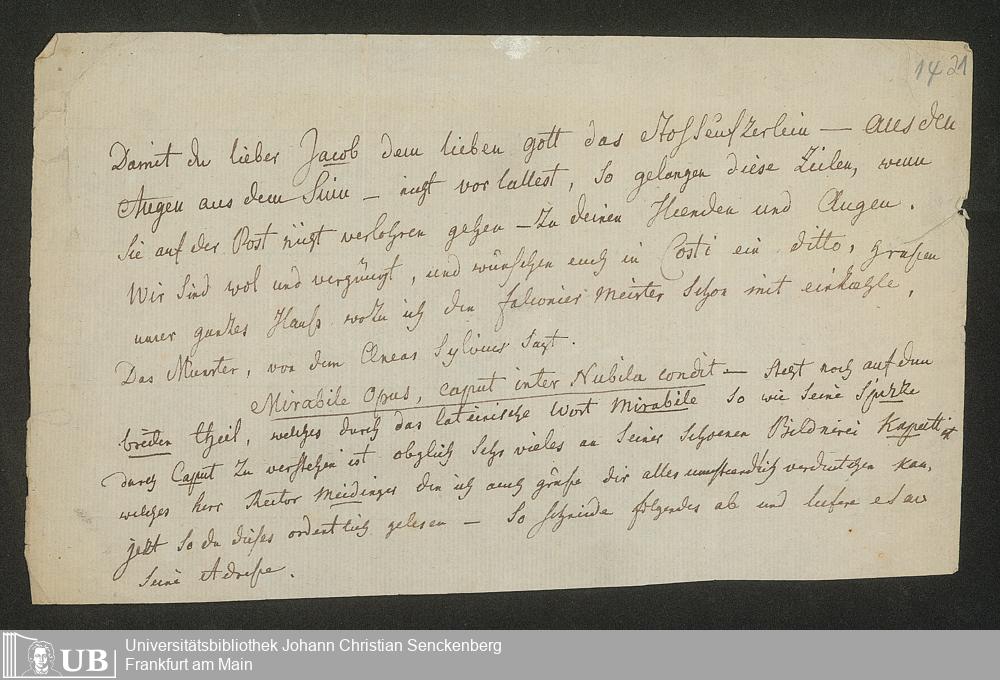 14 21
Damit du lieber Jacob dem lieben gott das Stosseufzerlein — Aus den
Augen aus dem Sinn — nicht vorlallest, So gelangen diese Zeilen, wenn
Sie auf der Post nicht verlohren gehen — Zu deinen Hænden und Augen.
Wir Sind wol und vergnügt, und wünschen euch in Costi ein ditto, grüssen
unser gantzes Hauß wozu ich den falconier Meister Schon mit einkæhle,
Das Munster, von dem Æneas Sylvius Sagt.
Mirabile Opus, caput inter Nubila condit — steht noch auf dem
breiten theil, welches durch das lateinische Wort Mirabile So wie Seine Spitzze
durch Caput Zu verstehen ist obglich Sehr vieles an Seiner Schoenen Bildnerei Kaputt ist
welches herr Rector Meidinger den ich auch grüse dir alles umstændlich verdeutschen kan,
jetzt So du dieses ordentlich gelesen — So schneide folgendes ab und liefere es an
Seine Adresse.
UB
Universitätsbibliothek Johann Christian Senckenberg
Frankfurt am Main